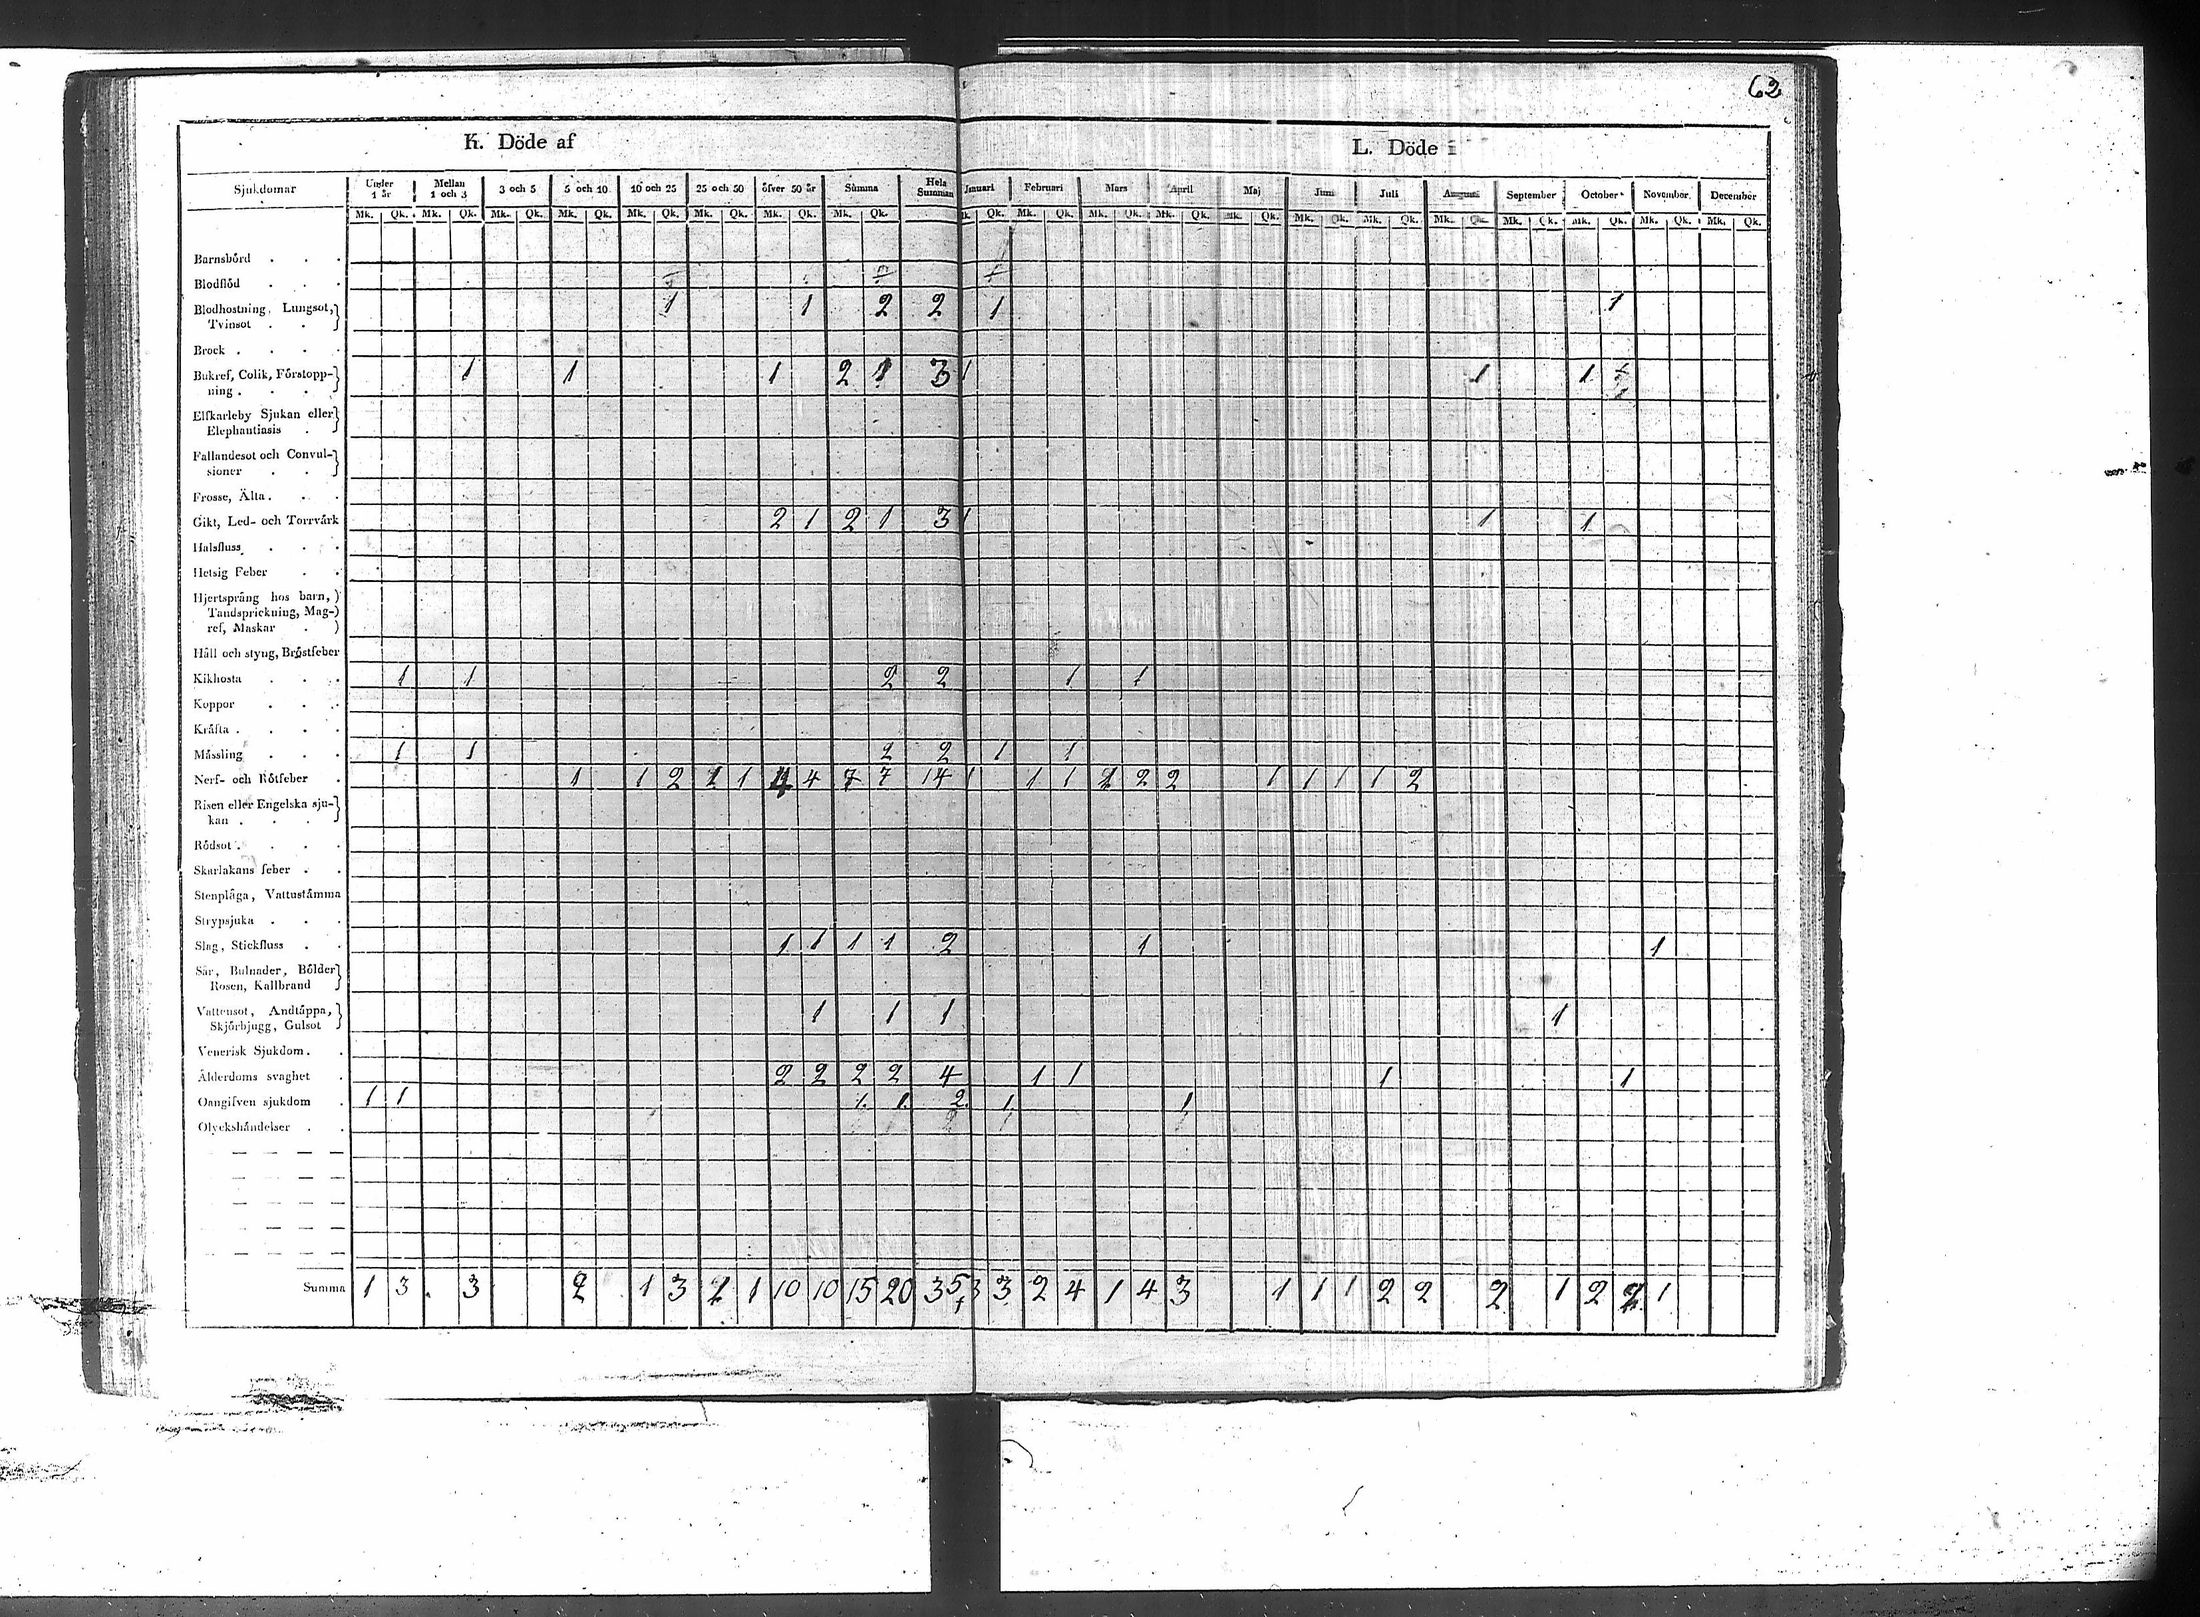 62
K. Döde af L. Döde i
Sjukdomar Under 1 år Mellan 1 och 3 3 och 5 5 och 10 10 och 25 25 och 50 öfver 50 år Summa Hela Summan Januari Februari Mars April Maj Juni Juli Augusti September October November December
Mk. Qk. Mk. Qk. Mk. Qk. Mk. Qk. Mk. Qk. Mk. Qk. Mk. Qk. Mk. Qk. Qk. Mk. Qk. Mk. Qk. Mk. Qk. Mk. Qk. Mk. Qk. Mk. Qk. Mk. Qk. Mk. Qk. Mk. Qk. Mk. Qk. Mk. Qk.
Barnsbörd
Blodflöd
Blodhostning, Lungsot, 1 1 2 2 1 1
Tvinsot
Brock
Bukref, Colik, Förstopp- 1 1 1 2 1 3 1 1 1
ning
Elfkarleby Sjukan eller
Elephantiasis
Fallandesot och Convul-
sioner
Frosse, Älta
Gikt, Led- och Torrvärk 2 1 2 1 3 1 1 1
Halsfluss
Hetsig Feber
Hjertsprång hos barn,
Tandsprickning, Mag-
ref, Maskar
Håll och styng, Bröstfeber
Kikhosta 1 1 2 2 1 1
Koppor
Kräfta
Mässling 1 1 2 2 1 1
Nerf- och Rötfeber 1 1 2 1 1 4 4 7 7 14 1 1 1 1 2 2 1 1 1 1 2
Risen eller Engelska sju-
kan
Rödsot
Skarlakans feber
Stenplåga, Vattustämma
Strypsjuka
Slag, Stickfluss 1 1 1 1 2 1 1
Sår, Bulnader, Bölder
Rosen, Kallbrand
Vattensot, Andtäppa, 1 1 1 1
Skjörbjugg, Gulsot
Venerisk Sjukdom
Ålderdoms svaghet 2 2 2 2 4 1 1 1 1
Oangifven sjukdom 1 1 1. 1. 2. 1 1
Olyckshändelser
Summa 1 3 3 2 1 3 1 1 10 10 15 20 35 3 3 2 4 1 4 3 1 1 1 2 2 2 1 2 2 1